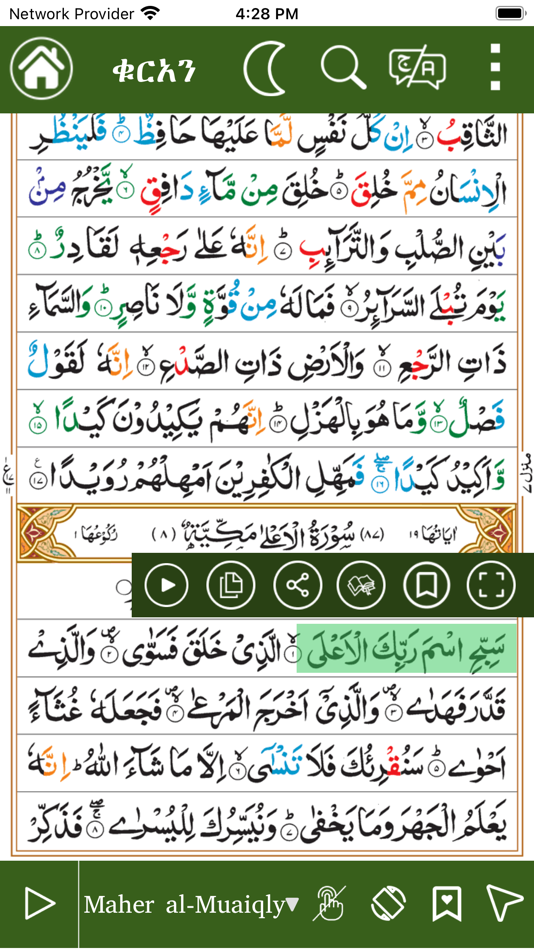 Network Provider 4:28 PM
ቁርአን
الثَّاقِبُ ۙ﴿۳﴾ اِنْ كُلُّ نَفْسٍ لَّمَّا عَلَيْهَا حَافِظٌ ؕ﴿۴﴾ فَلْيَنْظُرِ
الْاِنْسَانُ مِمَّ خُلِقَ ؕ﴿۵﴾ خُلِقَ مِنْ مَّآءٍ دَافِقٍ ۙ﴿۶﴾ يَّخْرُجُ مِنْۢ
بَيْنِ الصُّلْبِ وَالتَّرَآئِبِ ؕ﴿۷﴾ اِنَّهٗ عَلٰى رَجْعِهٖ لَقَادِرٌ ؕ﴿۸﴾
يَوْمَ تُبْلَى السَّرَآئِرُ ۙ﴿۹﴾ فَمَا لَهٗ مِنْ قُوَّةٍ وَّلَا نَاصِرٍ ؕ﴿۱۰﴾ وَالسَّمَآءِ
ذَاتِ الرَّجْعِ ۙ﴿۱۱﴾ وَالْاَرْضِ ذَاتِ الصَّدْعِ ۙ﴿۱۲﴾ اِنَّهٗ لَقَوْلٌ
فَصْلٌ ۙ﴿۱۳﴾ وَّمَا هُوَ بِالْهَزْلِ ؕ﴿۱۴﴾ اِنَّهُمْ يَكِيْدُوْنَ كَيْدًا ۙ﴿۱۵﴾
وَّاَكِيْدُ كَيْدًا ۖۚ﴿۱۶﴾ فَمَهِّلِ الْكٰفِرِيْنَ اَمْهِلْهُمْ رُوَيْدًا ﴿۱۷﴾
منزل ۷
اٰيَاتُهَا ۱۹ ﴿۸۷﴾ سُوْرَةُ الْاَعْلٰى مَكِّيَّةٌ ﴿۸﴾ رُكُوْعُهَا ۱
سَبِّحِ اسْمَ رَبِّكَ الْاَعْلَى ۙ﴿۱﴾ الَّذِيْ خَلَقَ فَسَوّٰى ۪ۙ﴿۲﴾ وَالَّذِيْ
قَدَّرَ فَهَدٰى ۪ۙ﴿۳﴾ وَالَّذِيْٓ اَخْرَجَ الْمَرْعٰى ۪ۙ﴿۴﴾ فَجَعَلَهٗ غُثَآءً
اَحْوٰى ؕ﴿۵﴾ سَنُقْرِئُكَ فَلَا تَنْسٰٓى ۙ﴿۶﴾ اِلَّا مَا شَآءَ اللّٰهُ ؕ اِنَّهٗ
يَعْلَمُ الْجَهْرَ وَمَا يَخْفٰى ؕ﴿۷﴾ وَنُيَسِّرُكَ لِلْيُسْرٰى ۖۚ﴿۸﴾ فَذَكِّرْ
Maher al-Muaiqly